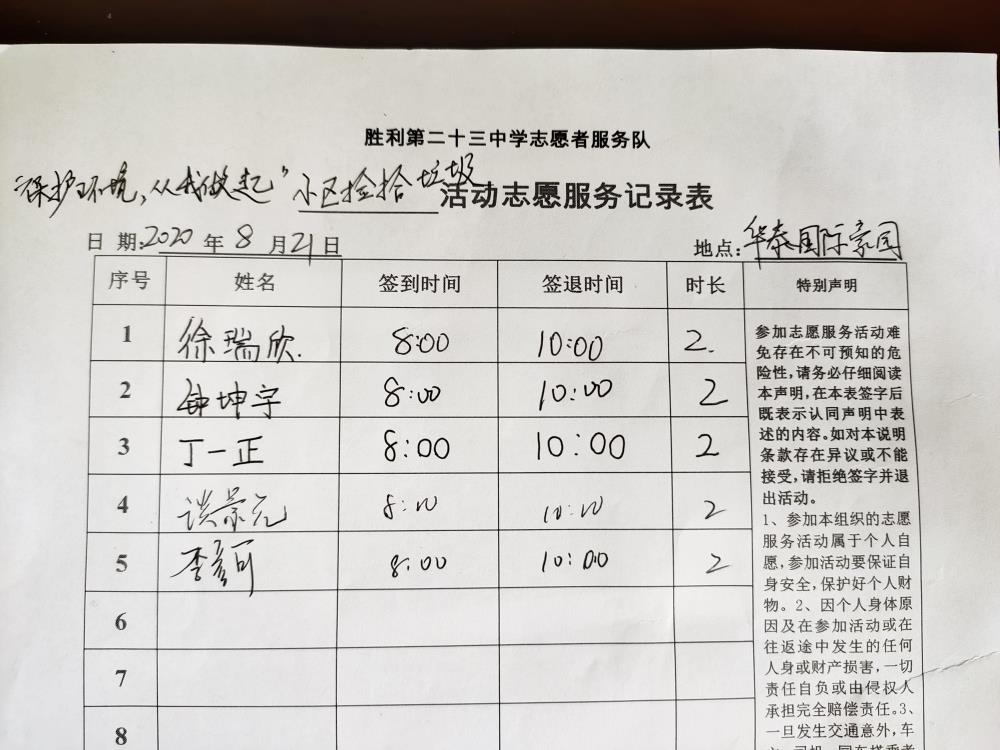 胜利第二十三中学志愿者服务队
"保护环境,从我做起"小区捡拾垃圾活动志愿服务记录表
日 期:2020 年 8 月 21 日 地点:华泰国际豪园
序号 姓名 签到时间 签退时间 时长 特别声明
1 徐瑞欣. 8:00 10:00 2.
2 钟坤宇 8:00 10:00 2
3 丁一正 8:00 10:00 2
4 谈景元 8:00 10:00 2
5 李彦可 8:00 10:00 2
6
7
8
参加志愿服务活动难
免存在不可预知的危
险性,请务必仔细阅读
本声明,在本表签字后
既表示认同声明中表
述的内容。如对本说明
条款存在异议或不能
接受,请拒绝签字并退
出活动。
1、参加本组织的志愿
服务活动属于个人自
愿,参加活动要保证自
身安全,保护好个人财
物。2、因个人身体原
因及在参加活动或在
往返途中发生的任何
人身或财产损害,一切
责任自负或由侵权人
承担完全赔偿责任。3、
一旦发生交通意外,车